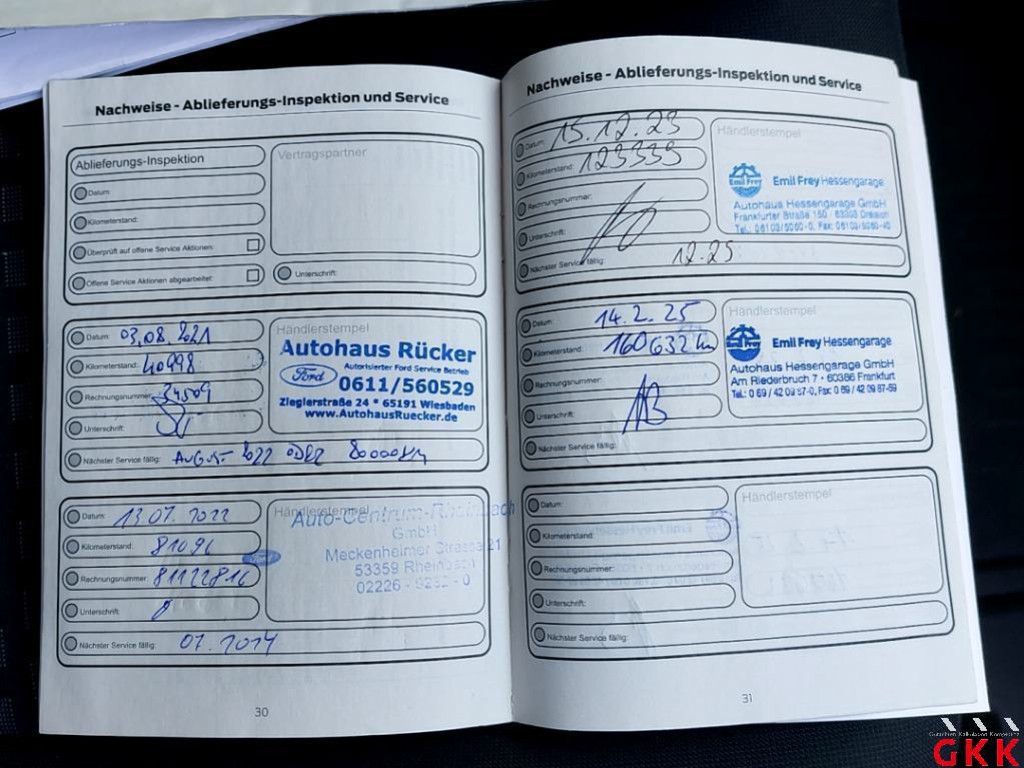 Nachweise - Ablieferungs-Inspektion und Service
Ablieferungs-Inspektion
Vertragspartner
Datum:
Kilometerstand:
Überprüft auf offene Service Aktionen:
Offene Service Aktionen abgearbeitet:
Unterschrift:
Datum: 03.08.2021
Kilometerstand: 40998
Rechnungsnummer: 34509
Unterschrift:
Nächster Service fällig: AUGUST 2022 ODER 80000KM
Händlerstempel
Autohaus Rücker
Autorisierter Ford Service Betrieb
Ford
0611/560529
Zieglerstraße 24 * 65191 Wiesbaden
www.AutohausRuecker.de
Datum: 13.07.2022
Kilometerstand: 81096
Rechnungsnummer: 81122816
Unterschrift:
Nächster Service fällig: 07.2024
Händlerstempel
Auto-Centrum-Rheinbach
GmbH
Meckenheimer Strasse 21
53359 Rheinbach
02226 - 9292 - 0
30
Nachweise - Ablieferungs-Inspektion und Service
Datum: 15.12.23
Kilometerstand: 123333
Rechnungsnummer:
Unterschrift:
Nächster Service fällig: 12.25
Händlerstempel
Emil Frey Emil Frey Hessengarage
Autohaus Hessengarage GmbH
Frankfurter Straße 150 · 63303 Dreieich
Tel.: 06103/5060-0, Fax: 06103/5060-40
Datum: 14.2.25
Kilometerstand: 160632 km
Rechnungsnummer:
Unterschrift:
Nächster Service fällig:
Händlerstempel
Emil Frey Emil Frey Hessengarage
Autohaus Hessengarage GmbH
Am Riederbruch 7 · 60386 Frankfurt
Tel.: 0 69 / 42 09 87-0, Fax: 0 69 / 42 09 87-59
Datum:
Kilometerstand:
Rechnungsnummer:
Unterschrift:
Nächster Service fällig:
Händlerstempel
31
Gutachten Kalkulation Kompetenz
GKK